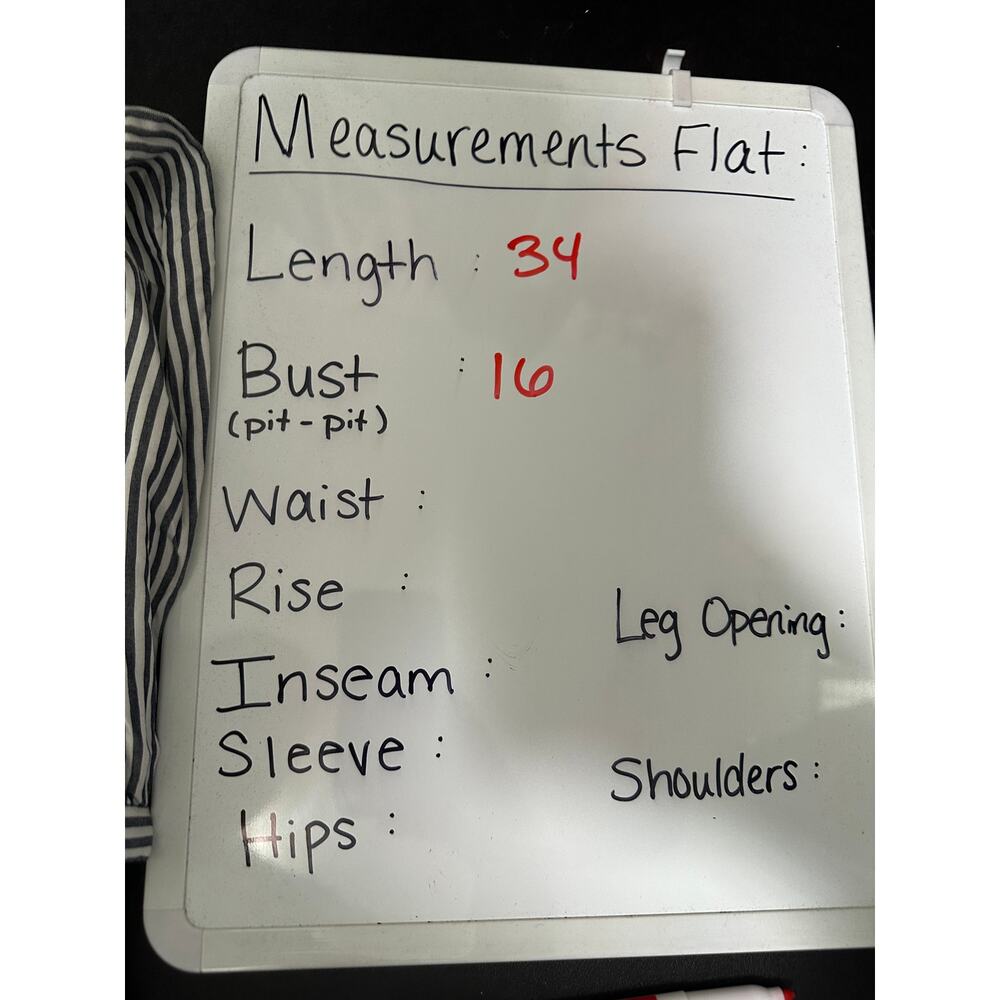 Measurements Flat:
Length : 34
Bust : 16
(pit - pit)
Waist :
Rise :
Leg Opening:
Inseam :
Sleeve :
Shoulders:
Hips :